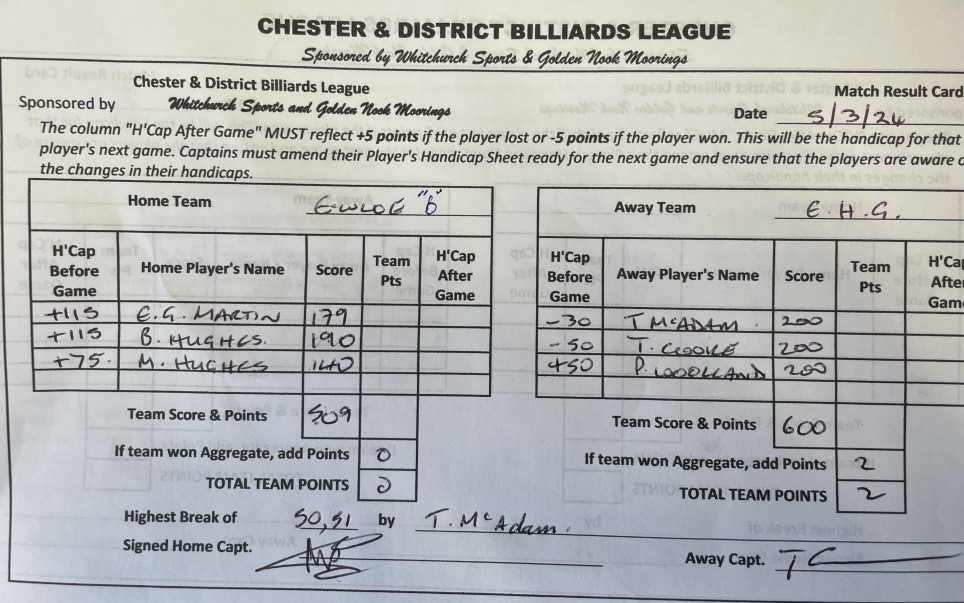 CHESTER & DISTRICT BILLIARDS LEAGUE
Sponsored by Whitchurch Sports & Golden Nook Moorings
Chester & District Billiards League
Match Result Card
Sponsored by Whitchurch Sports and Golden Nook Moorings
Date 5/3/24
The column "H'Cap After Game" MUST reflect +5 points if the player lost or -5 points if the player won. This will be the handicap for that
player's next game. Captains must amend their Player's Handicap Sheet ready for the next game and ensure that the players are aware o
the changes in their handicaps.
Home Team EWLOE "B"
H'Cap Before Game Home Player's Name Score Team Pts H'Cap After Game
+115 E.G. MARTIN 179
+115 B. HUGHES. 190
+75. M. HUGHES 140
Team Score & Points 509
If team won Aggregate, add Points 0
TOTAL TEAM POINTS
Away Team E.H.G.
H'Cap Before Game Away Player's Name Score Team Pts H'Cap After Game
-30 T MCADAM. 200
-50 T. COOKE 200
+50 P. WOOLLAND 200
Team Score & Points 600
If team won Aggregate, add Points 2
TOTAL TEAM POINTS 2
Highest Break of 50,51 by T. McAdam.
Signed Home Capt.
Away Capt. TC